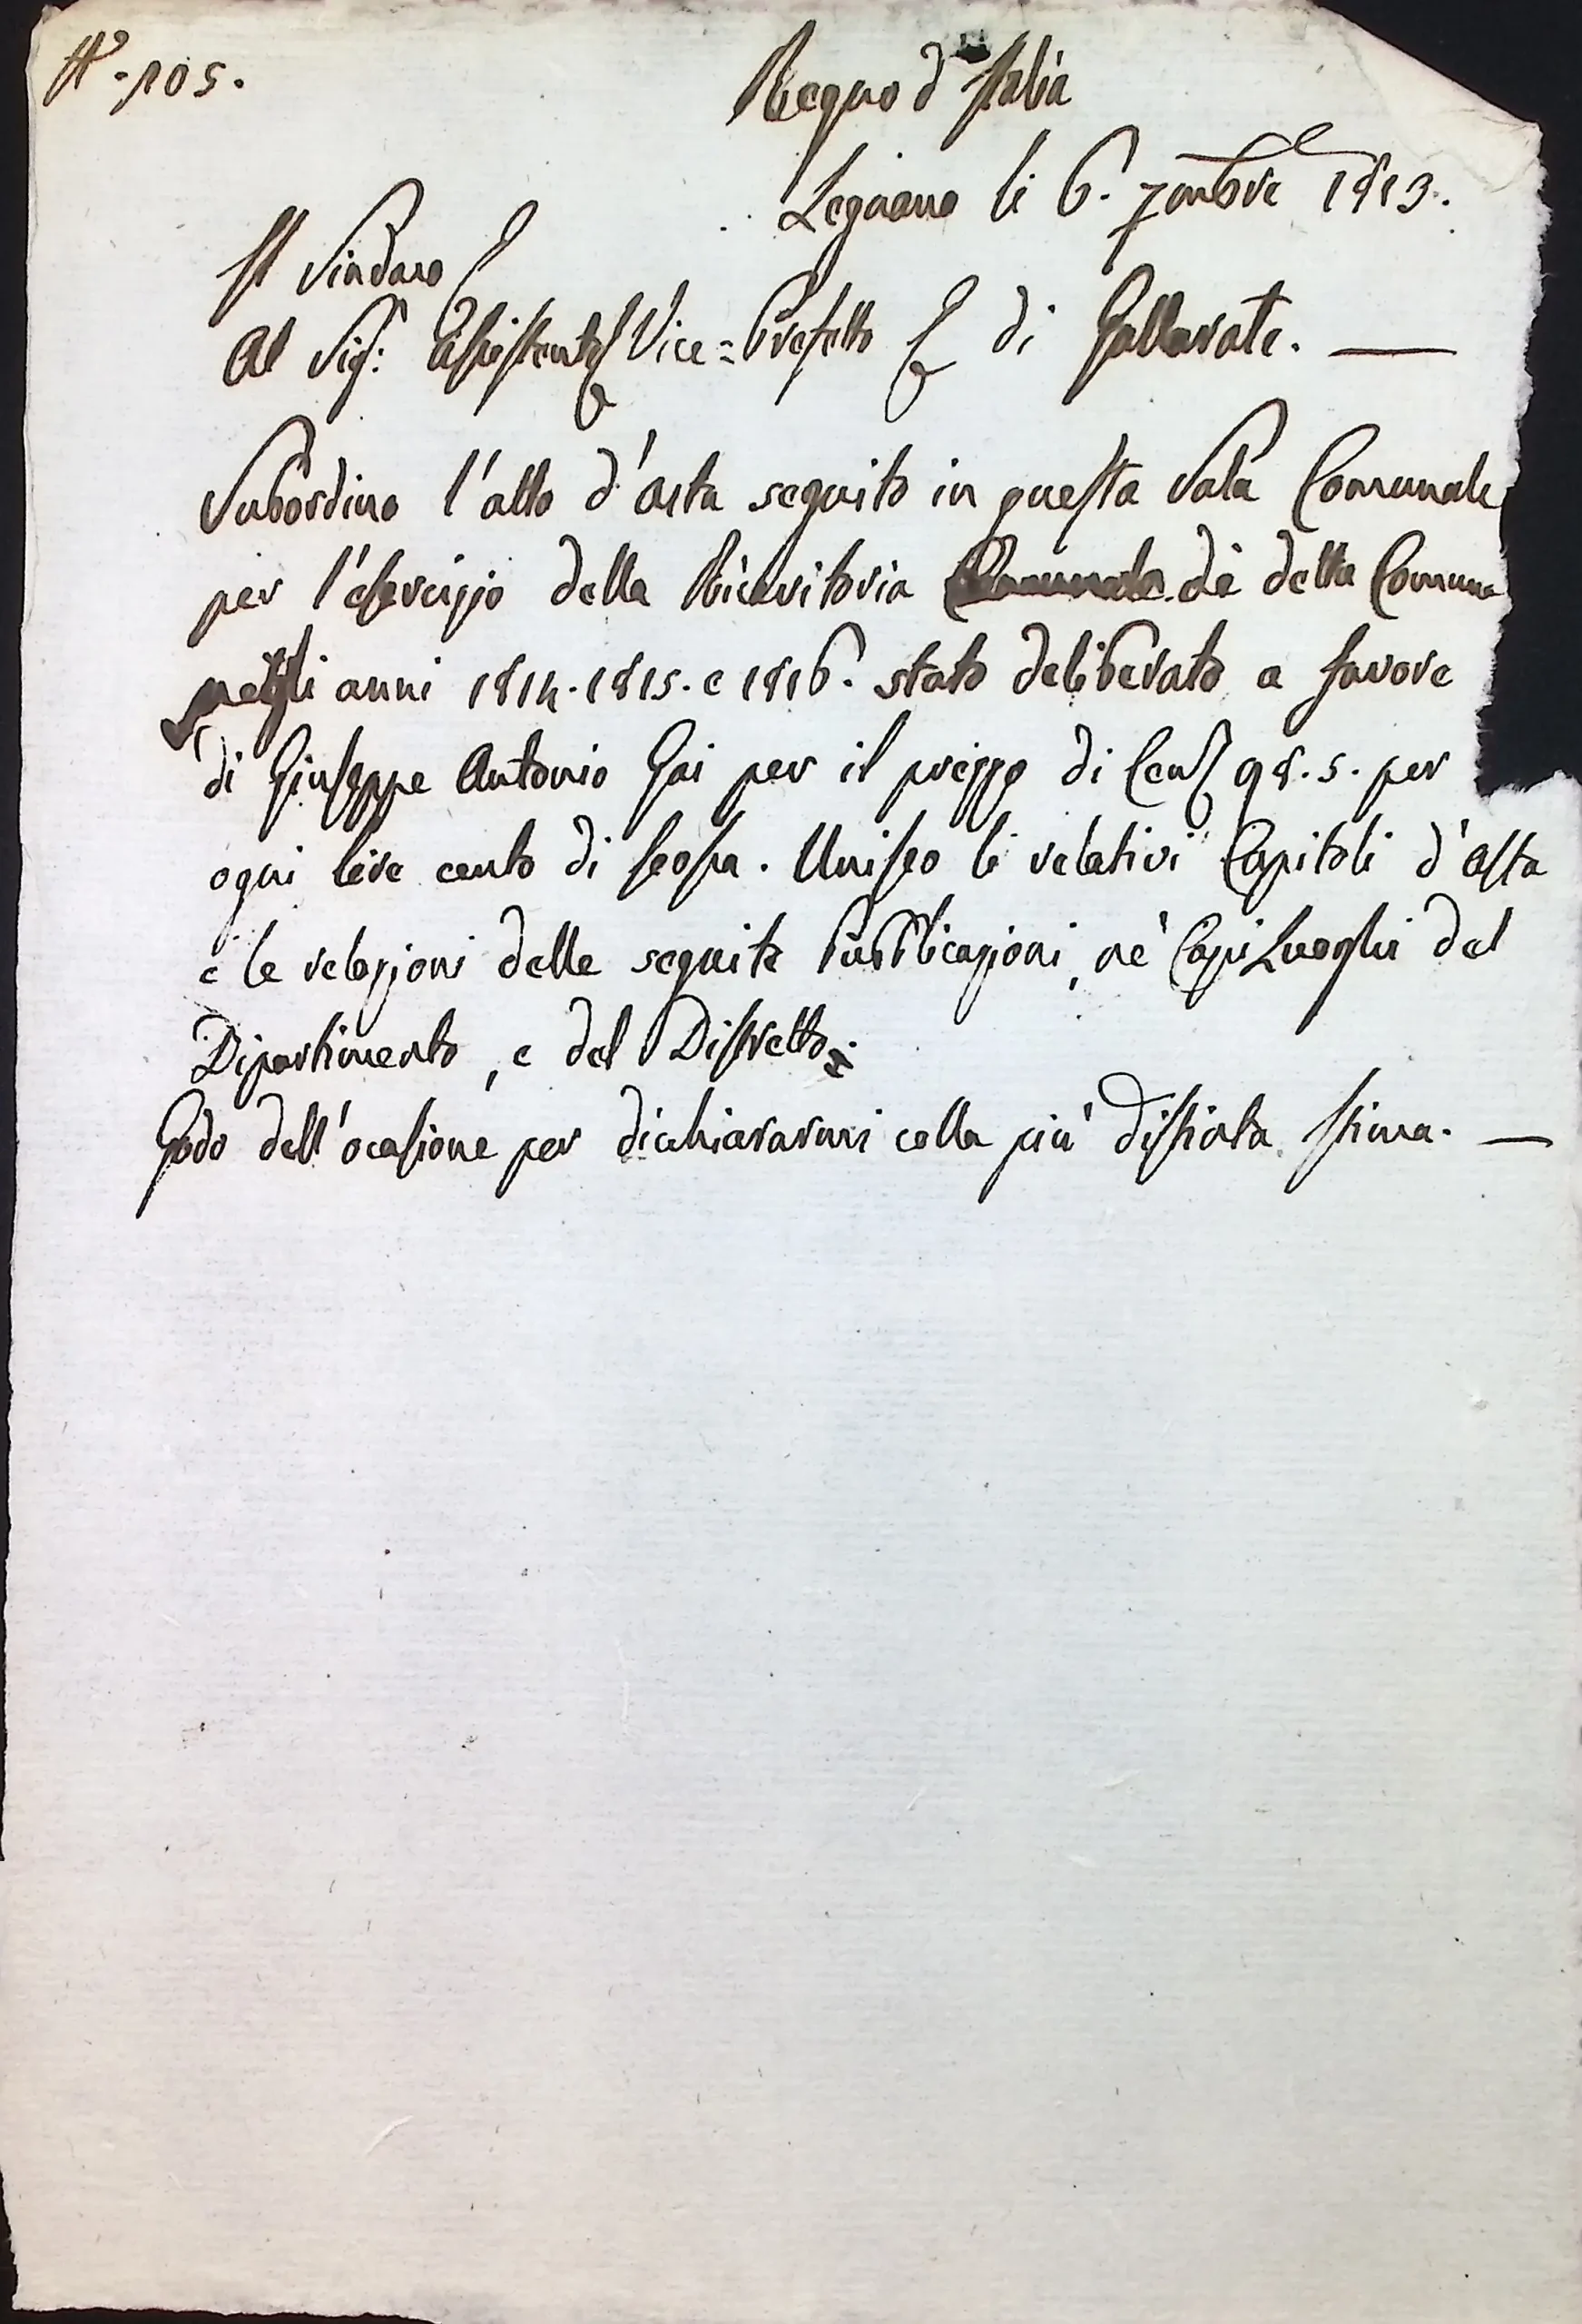 N.° 105.
Regno d'Italia
Legnano li 6. 7mbre 1813.
Il Sindaco
Al Sig.: Assistente Vice=Prefetto di Gallarate. —
Subordino l'atto d'asta seguito in questa Sala Comunale
per l'esercizio della Ricevitoria di detta Comune
negli anni 1814. 1815. e 1816. stato deliberato a favore
di Giuseppe Antonio Gai per il prezzo di Cent 98. 5. per
ogni lire cento di scossa. Unisco li relativi Capitoli d'asta
e le relazioni delle seguite Pubblicazioni, ne' Capi Luoghi del
Dipartimento, e del Distretto.
Godo dell'ocasione per dichiararmi colla più distinta stima. —